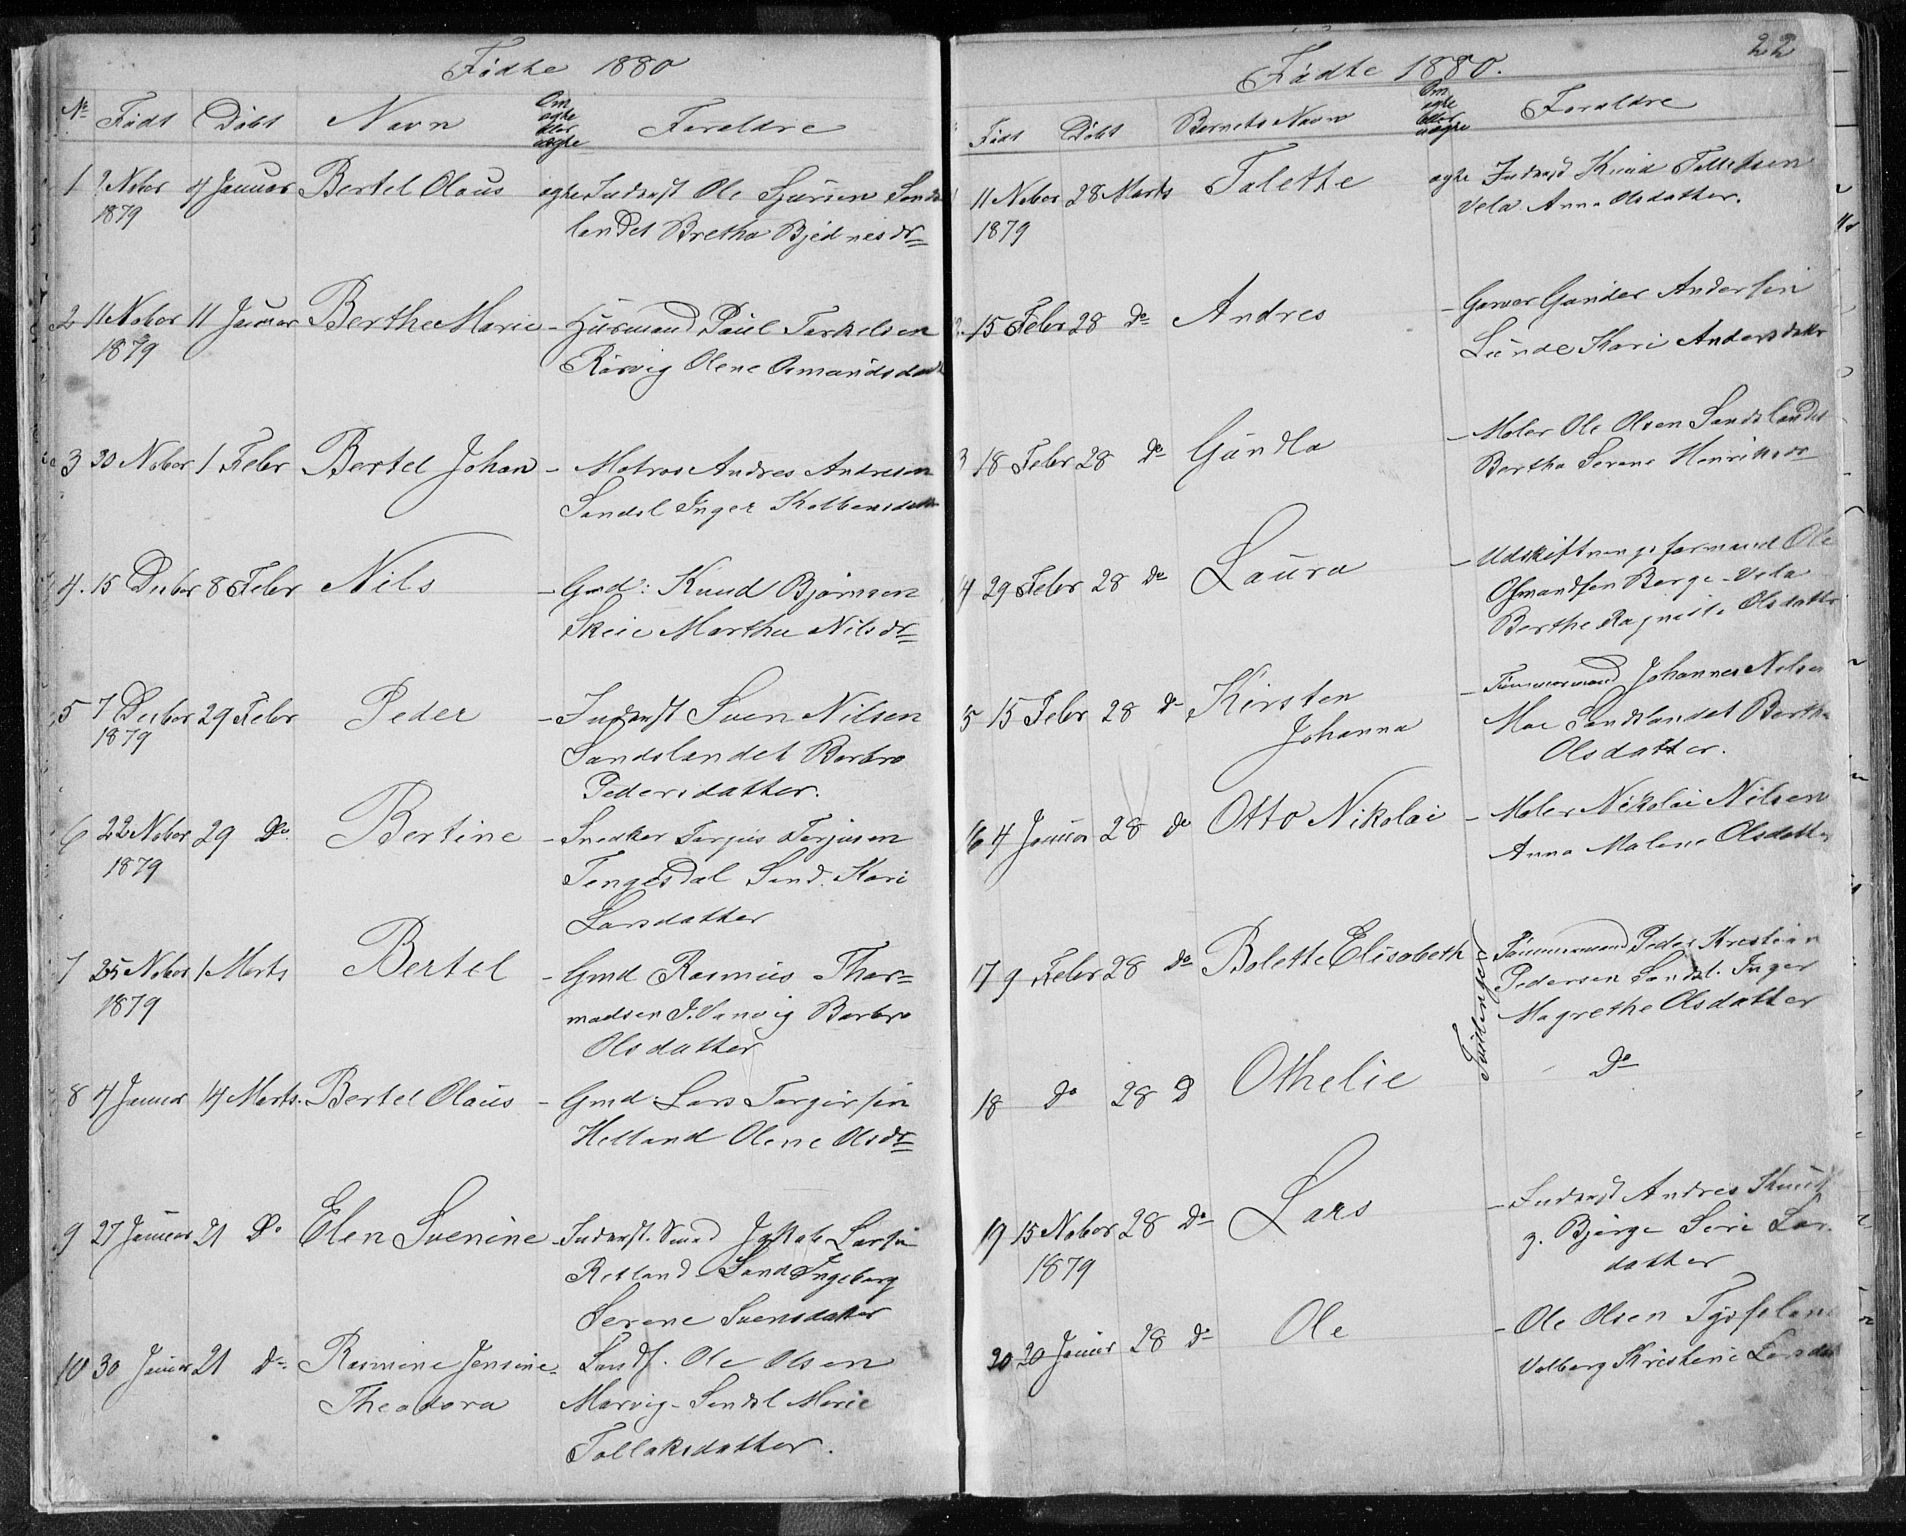 Fødte 1880
No Født Døbt Navn Om ægte eller uægte Forældre
1 9 Nobor 4 Januar Bertel Olaus ægte Inderst Ole Sjursen Sands
1879 landet Bretha Bjednesdr
2 11 Nobor 11 Januar Berthe Marie - Husmand Paul Terkelsen
1879 Rørvig Olene Osmundsdatt
3 30 Nobor 1 Febr Bertel Johan - Matros Andres Andresen
Sandsl Inger Kolbensdatter
4. 15 Decbor 8 Febr Nils - Gmd: Knud Bjørnsen
Skeie Martha Nilsdr
5 7 Decbor 29 Febr Peder - Inderst Sven Nilsen
1879 Sandslandet Barbro
Pedersdatter.
6 22 Nobor 29 Do Bertine - Snedker Torjus Torjusen
1879 Tengesdal Sand. Kari
Larsdatter
7 25 Nobor 1 Marts Bertel - Gmd Rasmus Thor=
1879 madsen I. Vanvig Barbro
Olsdatter
8 4 Januar 14 Marts. Bertel Olaus - Gmd: Lars Torgersen
Helland Olene Olsdr
9 27 Januar 21 Do Elen Svenine - Inderst. Smed Jakob Larsen
Retland Sand Ingeborg
Serene Svensdatter
10 30 Januar 21 Do Rasmine Jensine - Landh. Ole Olsen
Theodora Marvig - Sandsl Marie
Tollaksdatter.
22
Fødte 1880.
Født Døbt Barnets Navn Om ægte eller uægte Forældre
11 Nobor 28 Marts Talette ægte Inderst Knud Tollefsen
1879 Vela Anna Olsdatter.
15 Febr 28 Do Andres - Garver Gunder Andersen
Lunde Kari Andersdatter
3 18 Febr 28 Do Gundla - Maler Ole Olsen Sandslandet
Bertha Serene Henriksdr
4 29 Febr 28 Do Laura - Udskiftningsformand Ole
Osmundsen Berge - Vela
Berthe Ragnilla Olsdatter
5 15 Febr 28 Do Kirsten - Tømmermand Johannes Nelsen
Johanna Moe Sandslandet Bertha
Olsdatter.
16 4 Januar 28 Do Otto Nikolai - Maler Nikolai Nilsen
Anna Malene Olsdatter
17 9 Febr 28 Do Bolette Elisabeth Tvillinger Tømmermand Peder Kristian
Pedersen Sandsl. Inger
Magrethe Olsdatter
18 Do 28 D Othelie Do
19 15 Nobor 28 Do Lars - Inderst Andres Knuds
1879 g. Bjørge Seri Lar
datter
20 20 Januar 28 Do Ole - Ole Olsen Tysseland
Valborg Kristine Larsdat